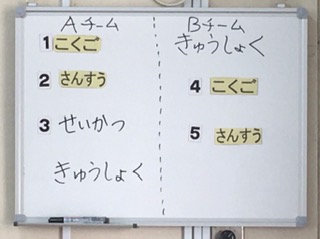 Aチーム
1 こくご
2 さんすう
3 せいかつ
きゅうしょく
Bチーム
きゅうしょく
4 こくご
5 さんすう